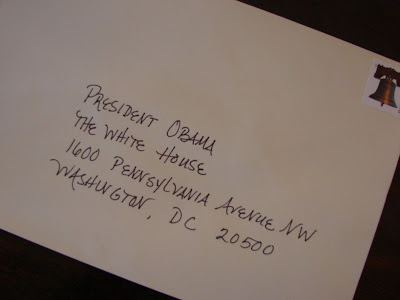 PRESIDENT OBAMA
THE WHITE HOUSE
1600 PENNSYLVANIA AVENUE NW
WASHINGTON, DC 20500